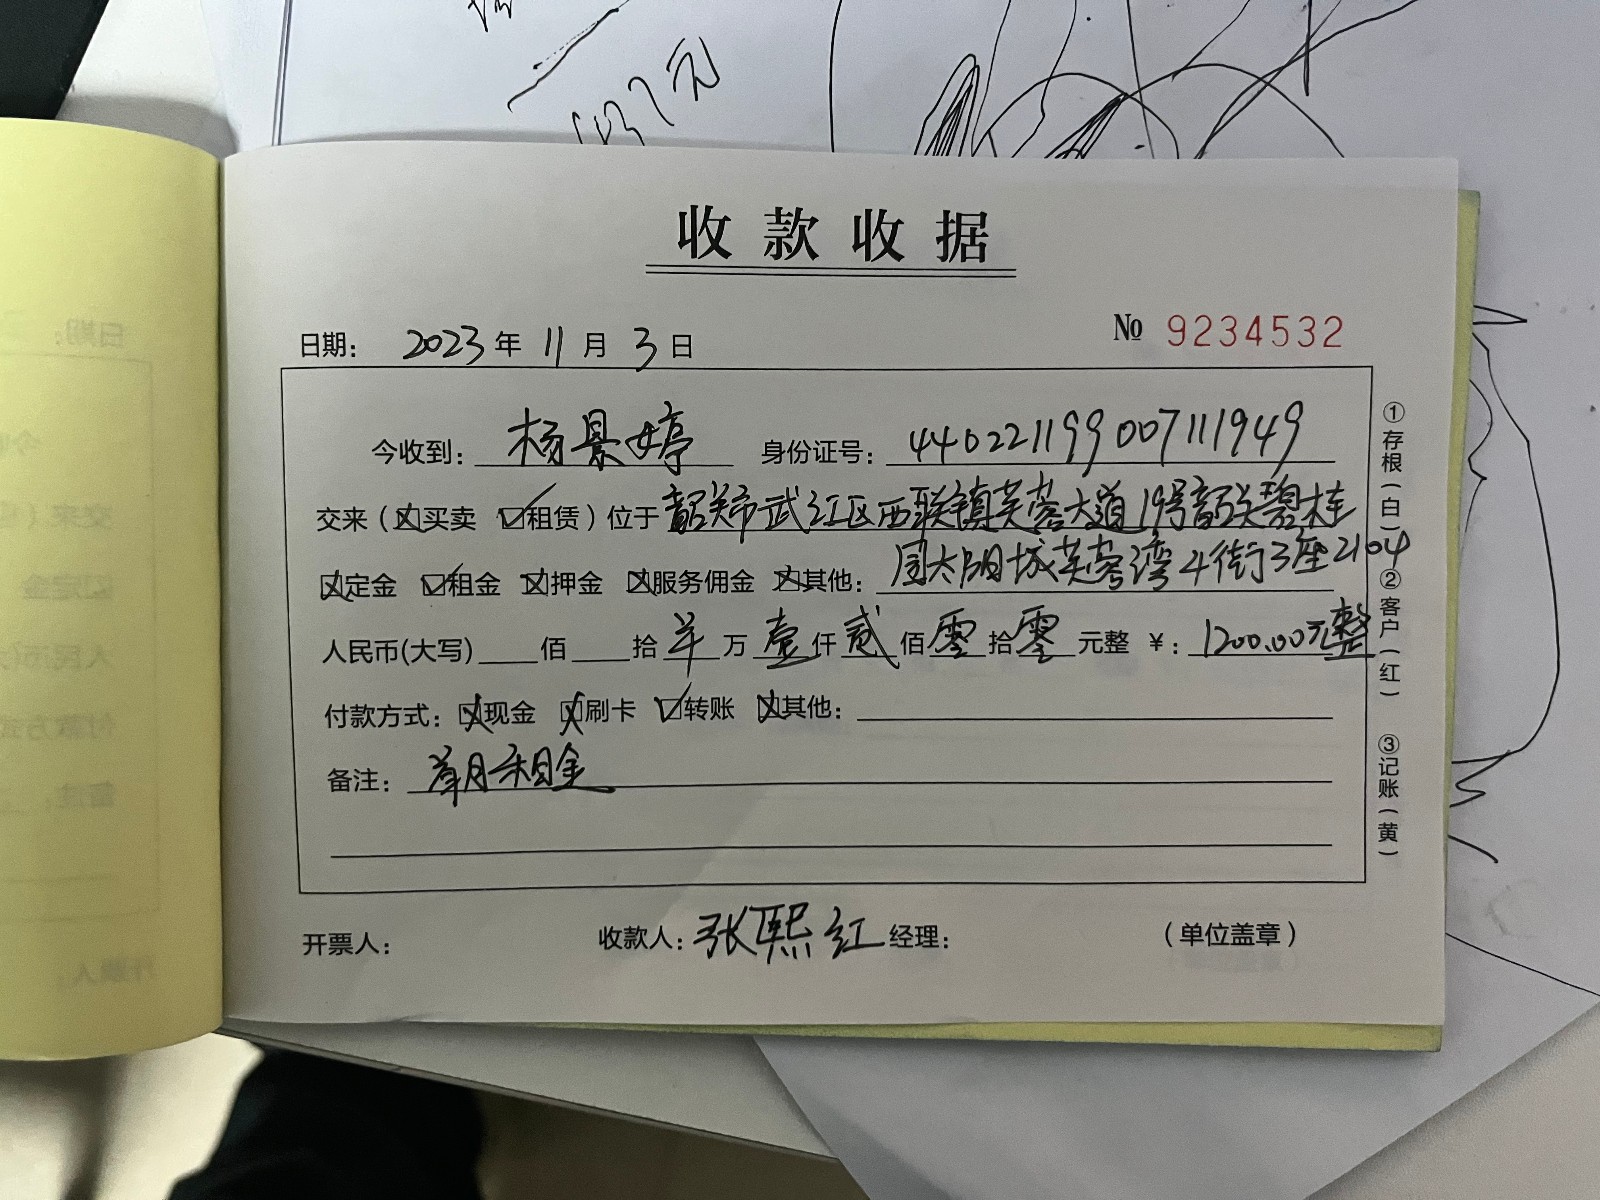 元
收款收据
日期： 2023 年 11 月 3 日
№ 9234532
今收到：杨景婷 身份证号：440221199007111949
交来（☒买卖 ☑租赁）位于韶关市武江区西联镇芙蓉大道19号韶关碧桂
园太阳城芙蓉湾4街3座2104
☒定金 ☑租金 ☒押金 ☒服务佣金 ☒其他：
人民币(大写)____佰____拾羊万壹仟贰佰零拾零元整 ￥：1200.00元整
付款方式：☒现金 ☒刷卡 ☑转账 ☒其他：
备注：首月租金
开票人： 收款人：张熙红 经理： （单位盖章）
①存根（白）
②客户（红）
③记账（黄）